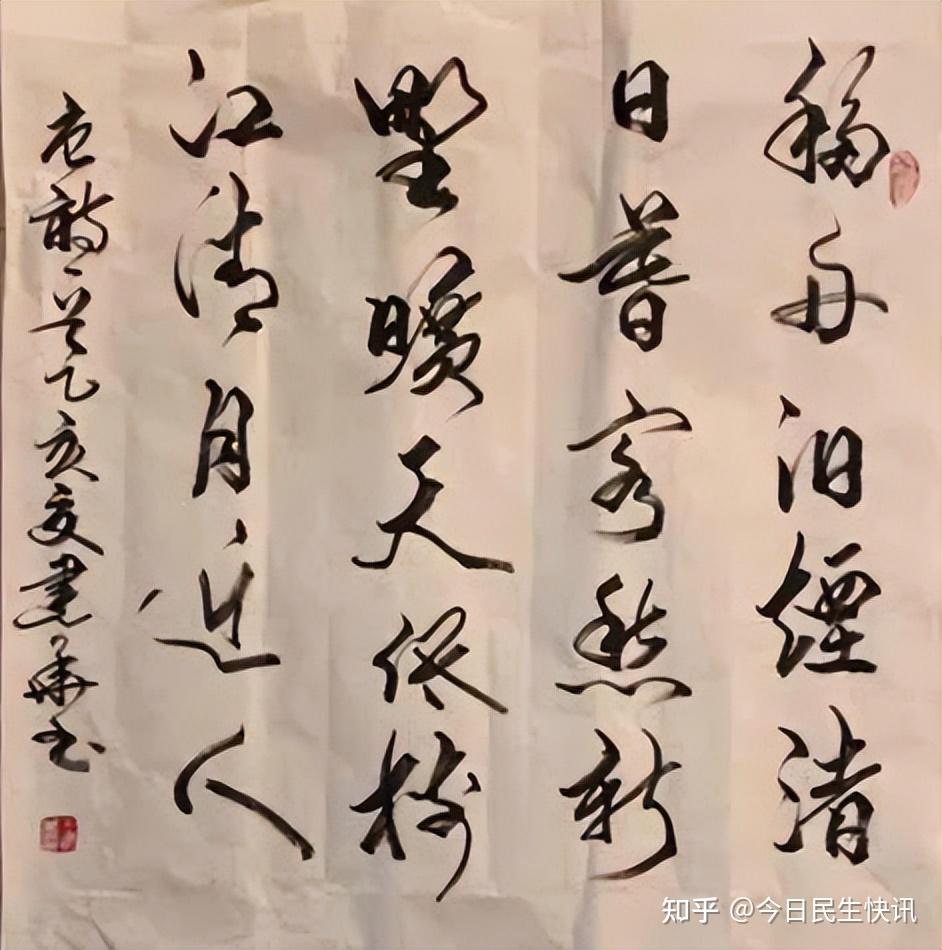 移舟泊煙渚
日暮客愁新
野曠天低樹
江清月近人
唐詩一首乙亥夏建華书
知乎 @今日民生快讯